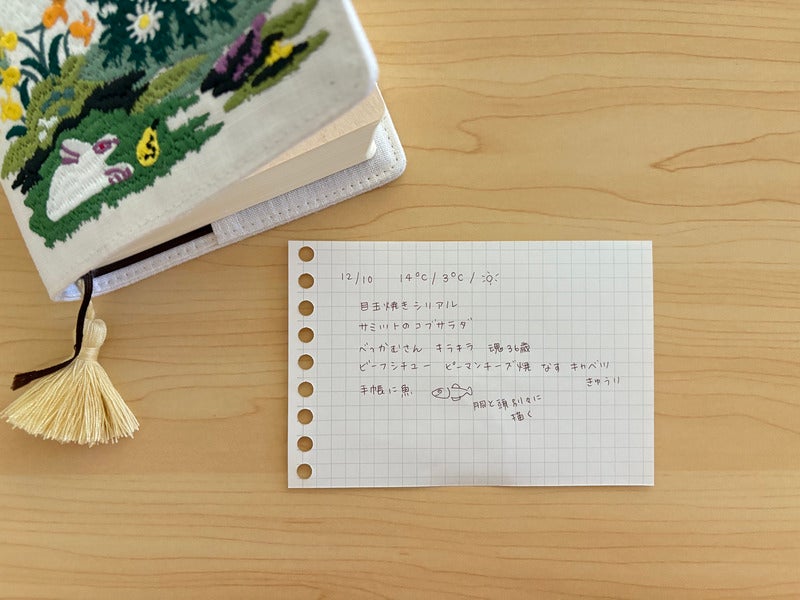 12/10 14℃/3℃/
目玉焼き シリアル
サミットのコブサラダ
べっかむさん キラキラ 魂36歳
ビーフシチュー ピーマンチーズ焼 なす キャベツ
きゅうり
手帳に魚
胴と頭別々に
描く